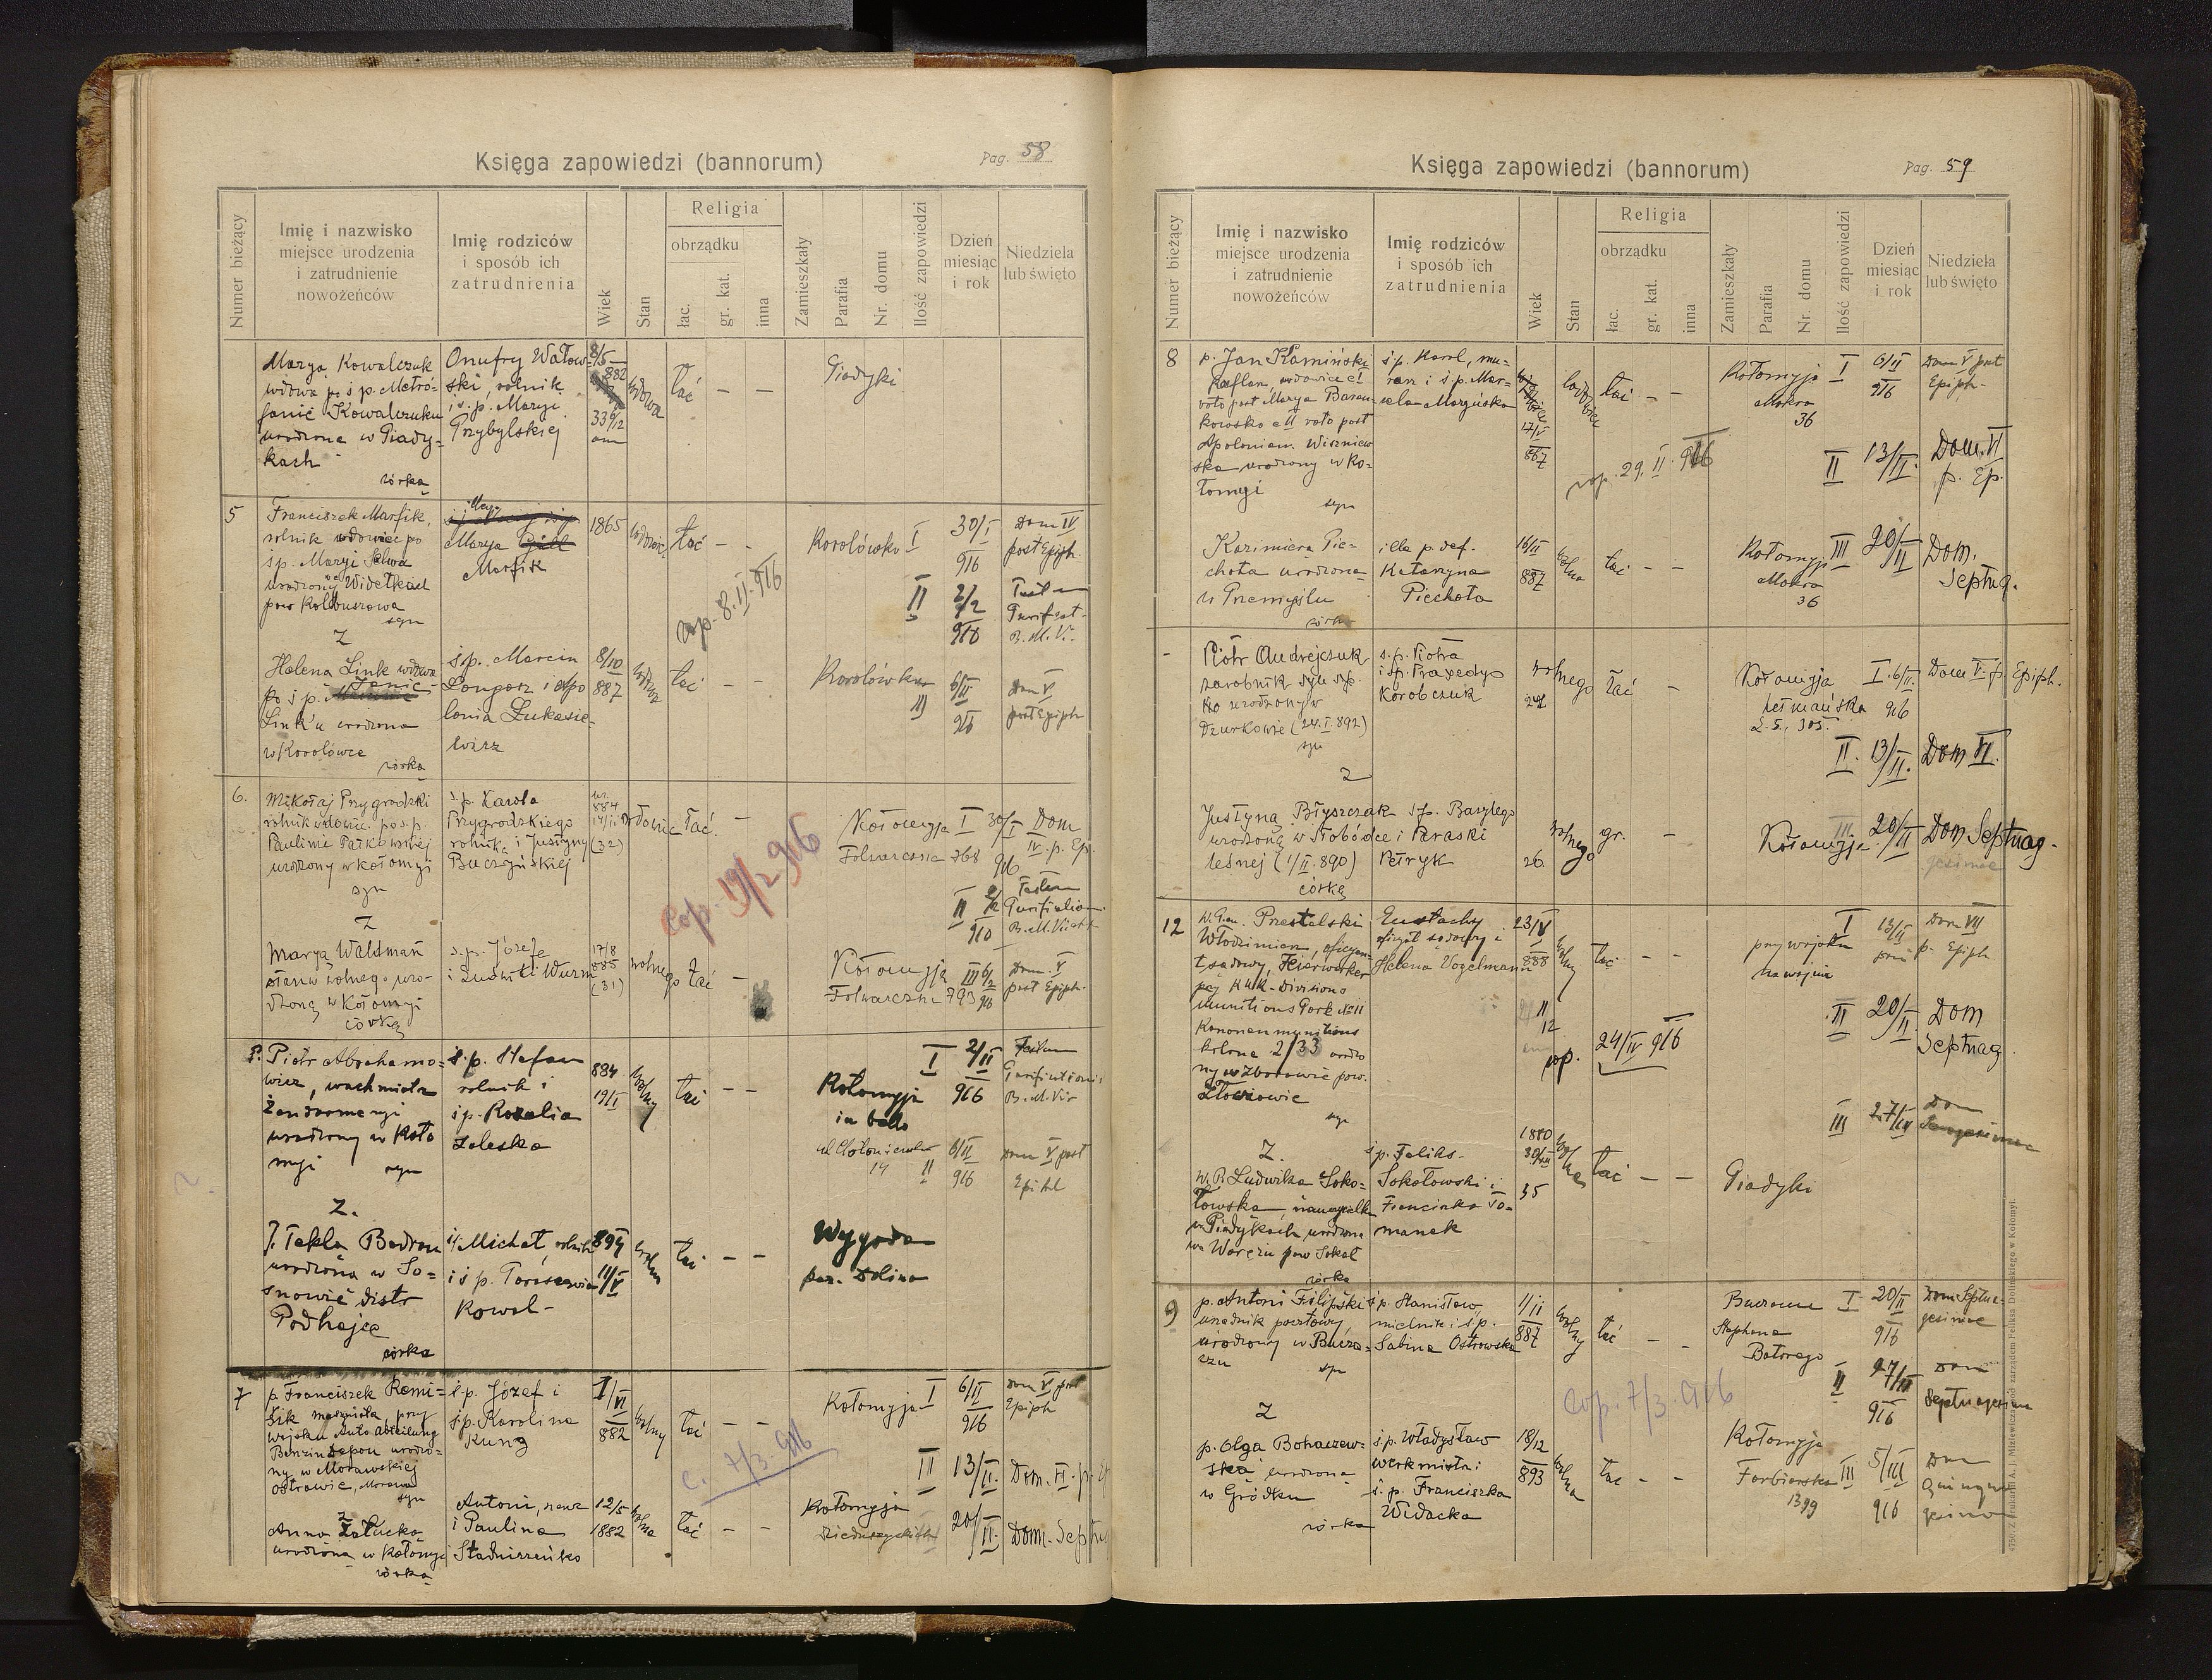 Księga zapowiedzi (bannorum)
Pag. 58
Numer bieżący
Imię i nazwisko
miejsce urodzenia
i zatrudnienie
nowożeńców
Imię rodziców
i sposób ich
zatrudnienia
Wiek
Stan
Religia
obrządku
łac.
gr. kat.
inna
Zamieszkały
Parafia
Nr. domu
Ilość zapowiedzi
Dzień
miesiąc
i rok
Niedziela
lub święto
Marya Kowalczuk
wdowa po ś p. Metro-
fanie Kowalczuku
urodzona w Piady-
kach
córka
Onufry Wałow-
ski, rolnik
i ś. p. Marya
Przybylskiej
8/5
882
33
wdowa
łać — —
Piadyki
5
Franciszek Marfik,
rolnik wdowiec po
śp. Maryi Selwa
urodzony Widełkach
pow Kolbuszowa
syn
Marya
Marfik
1865
wdowiec
łać — -
cop. 8. II. 916
Korolówka I 30/I 916 Dom IV
post Epiph.
II 2/2 916 Festum
Purificat.
B. M. V.
Z
Helena Link wdowa
po ś p.
Link'u urodzona
w Korolówce
córka
ś p. Marcin
Longosz i Apo
lonia Łukasie-
wicz
8/10
887
wdowa
łać — —
Korolówka
III 6/II 916
Dom V
post Epiph
6.
Mikołaj Przygrodzki
rolnik wdowiec po ś.p.
Paulinie Pałkowskiej
urodzony w Kołomyi
syn
ś. p. Karola
Przygrodzkiego
rolnika i Justyny
Buczyńskiej
ur.
884
(32)
wdowiec łać. —
Cop. 19/2 916
Kołomyja I 30/I Dom
Folwarczna 768 916 IV. p. Ep.
II 2/2 916 Festum
Purification.
Z
Marya Waldman
stanu wolnego uro-
dzona w Kołomyi
córka
ś. p. Józefa
i Ludwiki Wurm
17/8
885
(31)
wolnego łać —
Kołomyja III 6/2 Dom. V
Folwarczna 793 916 post Epiph.
Piotr Abrahamo-
wicz, wachmistrz
żandarmeryi
urodzony w Koło
myi syn
ś. p. Stefan
rolnik i
ś p. Rozalia
Zaleska
884
19/I
wolny
łać — —
I 2/II 916
Festum
Purificationis
B. M. Vir
Kołomyja
in bello
14
II 6/II 916
Dom V post
Epiph
Z.
P. Tekla Bedron
urodzona w So-
snowie distr
Podhajce
córka
Michał, rolnik
i ś p.
Kowal-
894
11/V
wolna
łać — —
Wygoda
par. Dolina
7
p. Franciszek Remi-
szik maszynista, przy
wojsku Auto Abteilung
Benzindepou urodzo-
ny w Morawskiej
Ostrawie, Morawa
syn
ś. p. Józef i
śp. Karolina
Kunz
1/VI
882
wolny
łać — —
c. 7/3. 916
Kołomyja I 6/II 916 Dom V post
Epiph
II 13/II. Dom. VI. p. Ep
z
Anna Załucka
urodzona w Kołomyi
córka
Antoni,
i Paulina
Stadniszeńko
12/5
1882
wolna
łać — —
Kołomyja
20/II. Dom. Septu
Księga zapowiedzi (bannorum)
Pag. 59
Numer bieżący
Imię i nazwisko
miejsce urodzenia
i zatrudnienie
nowożeńców
Imię rodziców
i sposób ich
zatrudnienia
Wiek
Stan
Religia
obrządku
łac.
gr. kat.
inna
Zamieszkały
Parafia
Nr. domu
Ilość zapowiedzi
Dzień
miesiąc
i rok
Niedziela
lub święto
8
p. Jan Kamiński
kaflarz, wdowiec I
voto post Marya Baran-
kowska a II voto post
Apoloniam Wiszniew
ska urodzony w Ko-
łomyi
syn
ś p. Karol, mu-
rarz i ś. p. Mar-
cela Marzyńska
17/V
867
wdowiec
łać — —
cop. 29. II. 916
Kołomyja I 6/II 916 Dom V post
Mokra Epiph.
36
II 13/II. Dom. VI
p. Ep.
Kazimiera Pie-
chota urodzona
w Przemyślu
córka
illa p. def.
Katarzyna
Piechota
16/II
887
wolna
łać — —
Kołomyja III 20/II Dom.
Mokra Septuag.
36
Piotr Andrejczuk
zarobnik syn
urodzony w
Dzurkowie (24. I. 892)
syn
ś. p. Piotra
i śp. Praxedy
Korobczuk
wolnego
łać —
Kołomyja I. 6/II. Dom V. p. Epiph.
916
L. s. 305.
II. 13/II. Dom VI.
Z
Justyna Błyszczak
urodzona w Słobódce
leśnej (1/II. 890)
córka
śp. Bazylego
i Paraski
Petryk
26.
wolnego gr. —
Kołomyja III 20/II Dom Septuag.
gesimae
12
W. Pan. Prestalski
Włodzimierz, oficyan-
t sądowy, Feierwerker
przy K.u.K. Divisions
Munitions Park No 11
Kanonen munitions
kolone 2/33 urodzo
ny w Zborowie pow.
Złoczowie
syn
Eustachy
oficyał sądowy i
Helena Vogelmann
23/V
888
wolny
łać — —
cop. 24/IV 916
przy wojsku
na wojnie
I 13/II Dom VI
p. Epiph
II 20/II Dom
Septuag
III 27/II Dom
Z.
W. P. Ludwika Soko-
łowska, nauczycielka
w Piadykach, urodzona
w Warężu pow Sokal
córka
ś p. Feliks
Sokołowski i
Franciszka To-
manek
1880
35
wolna
łać — —
Piadyki
9
p. Antoni Filipski
urzędnik pocztowy,
urodzony w Bucza-
czu syn
ś p. Stanisław,
mielnik i ś p.
Sabina Ostrowska
1/11
887
wolny
łać —
Cop. 7/3. 916
Buczacz I 20/II 916 Dom. Septua-
gesimae
Stephana
Batorego
II 27/II 916 Dom
Z
p. Olga Bohaczew-
ska urodzona
w Gródku
córka
ś. p. Władysław
werkmistrz i
ś. p. Franciszka
Widacka
18/12
893
wolna
łać — —
Kołomyja
Farbiarska III 5/III 916 Dom
1399 Quinqua
gesimae